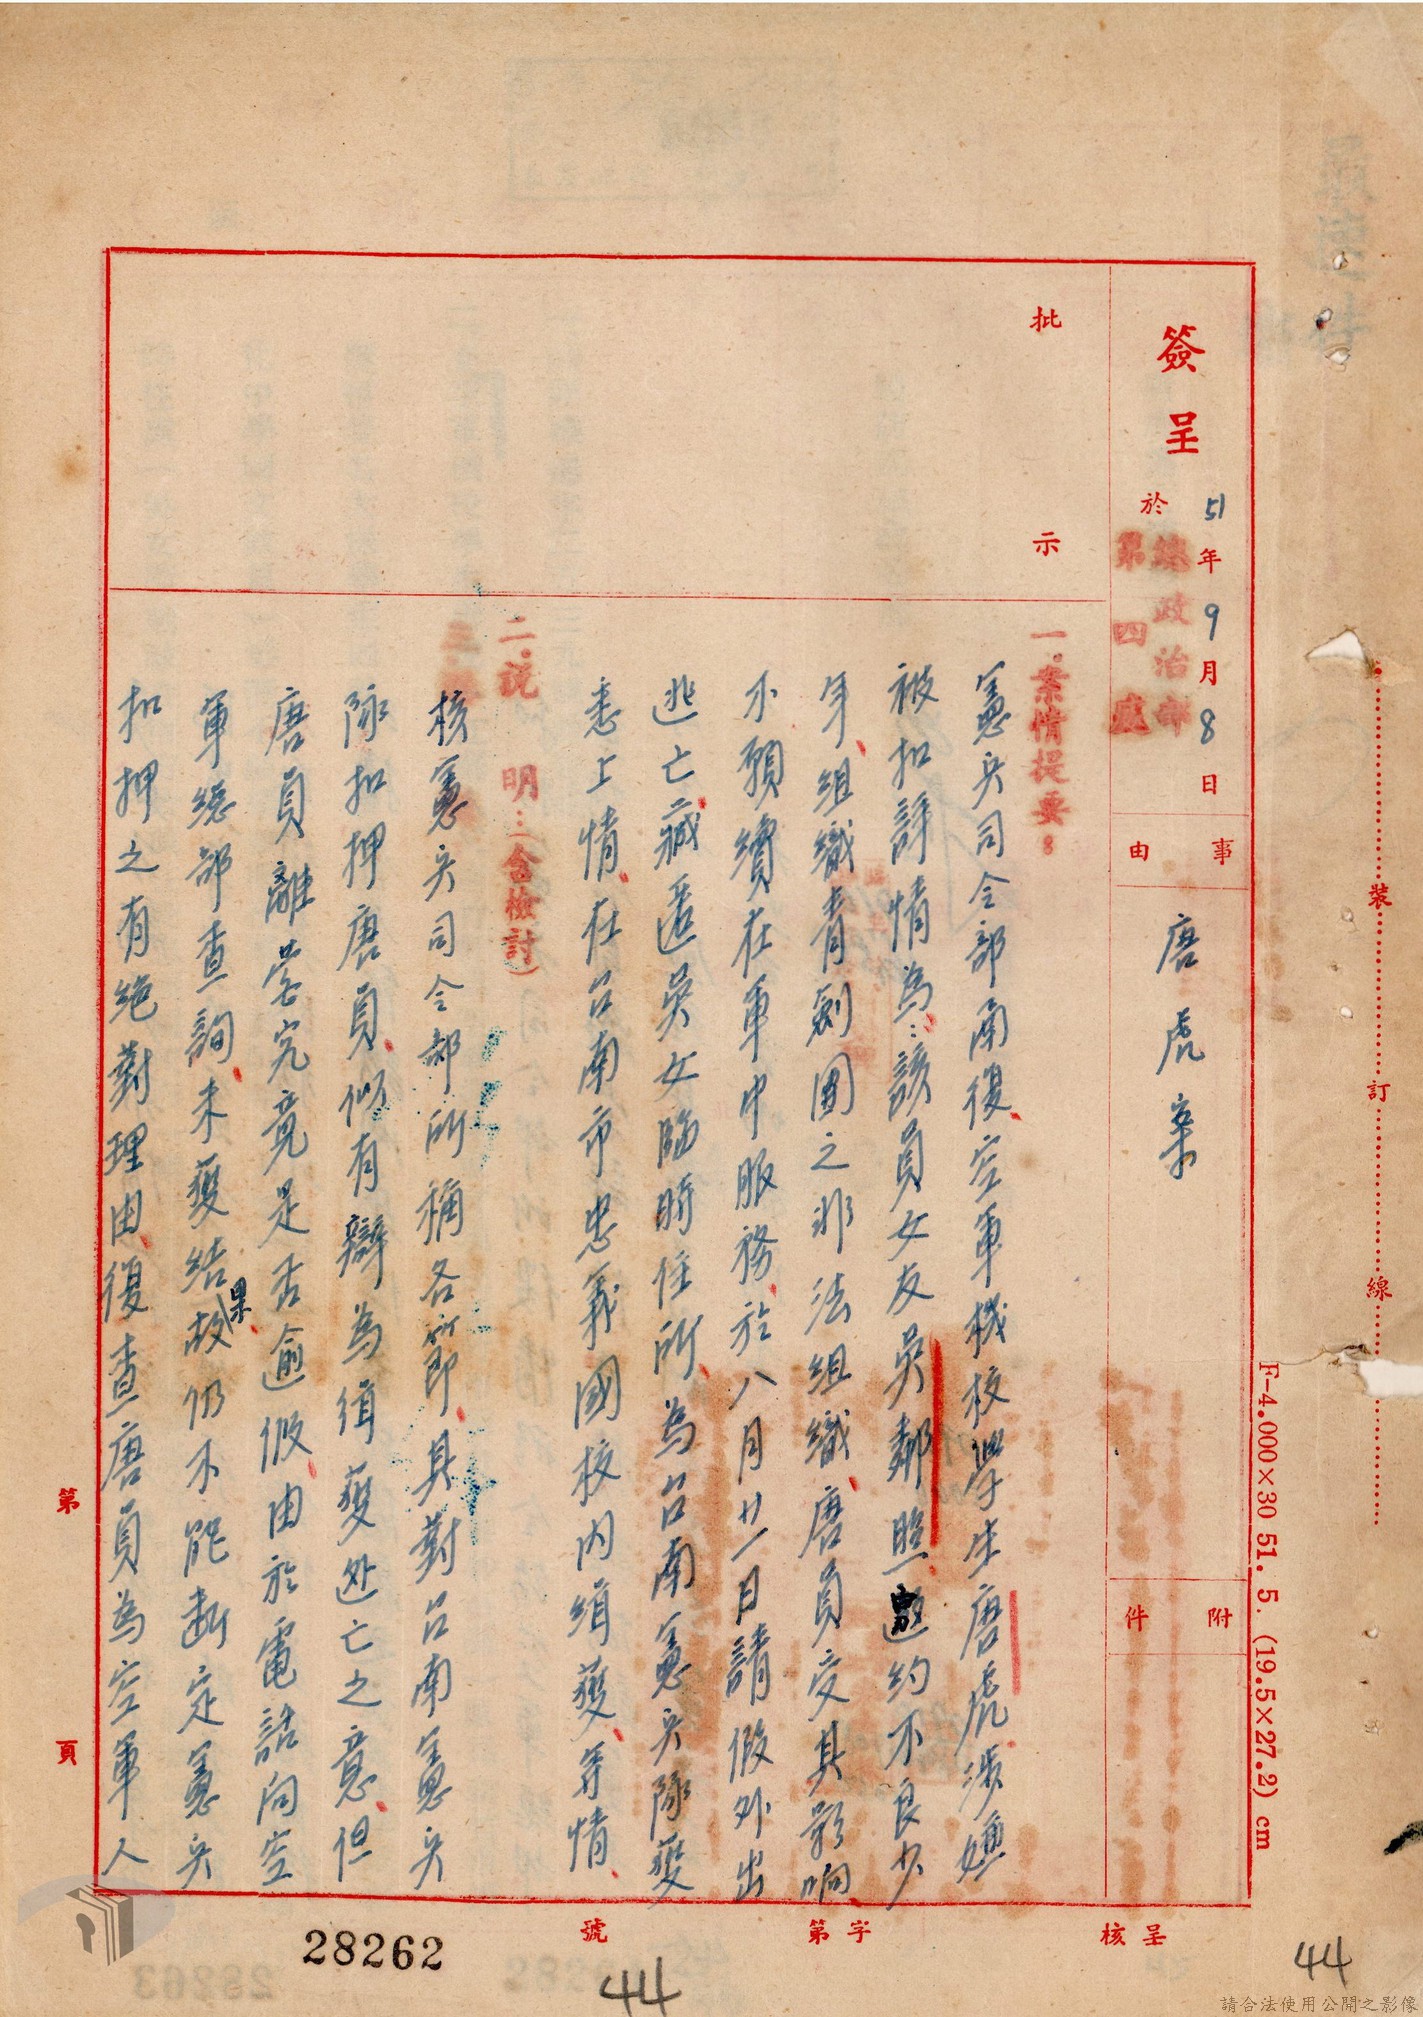 簽呈
51年9月8日
於
總政治部
第四處
事由
唐虎案
附件
批示
一.案情提要:
憲兵司令部南復、空軍機校學生唐虎涉嫌
被扣詳情為:該員女友吳鄰照邀約不良少
年、組織青劍團之非法組織、唐員受其影响
不願續在軍中服務、於八月廿一日請假外出
逃亡、藏匿吳女臨時住所、為台南憲兵隊獲
悉上情、在台南市忠義國校內緝獲、等情
二.説 明:(含檢討)
核憲兵司令部所稱各節、其對台南憲兵
隊扣押唐員、似有辯為緝獲逃亡之意、但
唐員離營究竟是否逾假、由於電話向空
軍總部查詢、未獲結果、故仍不能斷定憲兵
扣押之有絶對理由、復查唐員為空軍人
第 頁
呈核
字第 號
28262
44
44
裝訂線
F-4.000×30 51. 5. (19.5×27.2) cm
請合法使用公開之影像